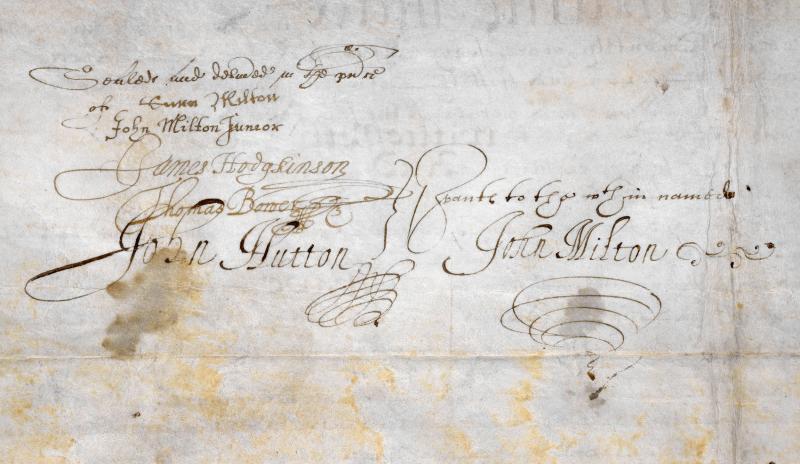 Sealed and delivered in the pñce
of Sara Milton
John Milton Junior
James Hodgkinson
Thomas Bower
John Hutton
Svants to the wthin named
John Milton